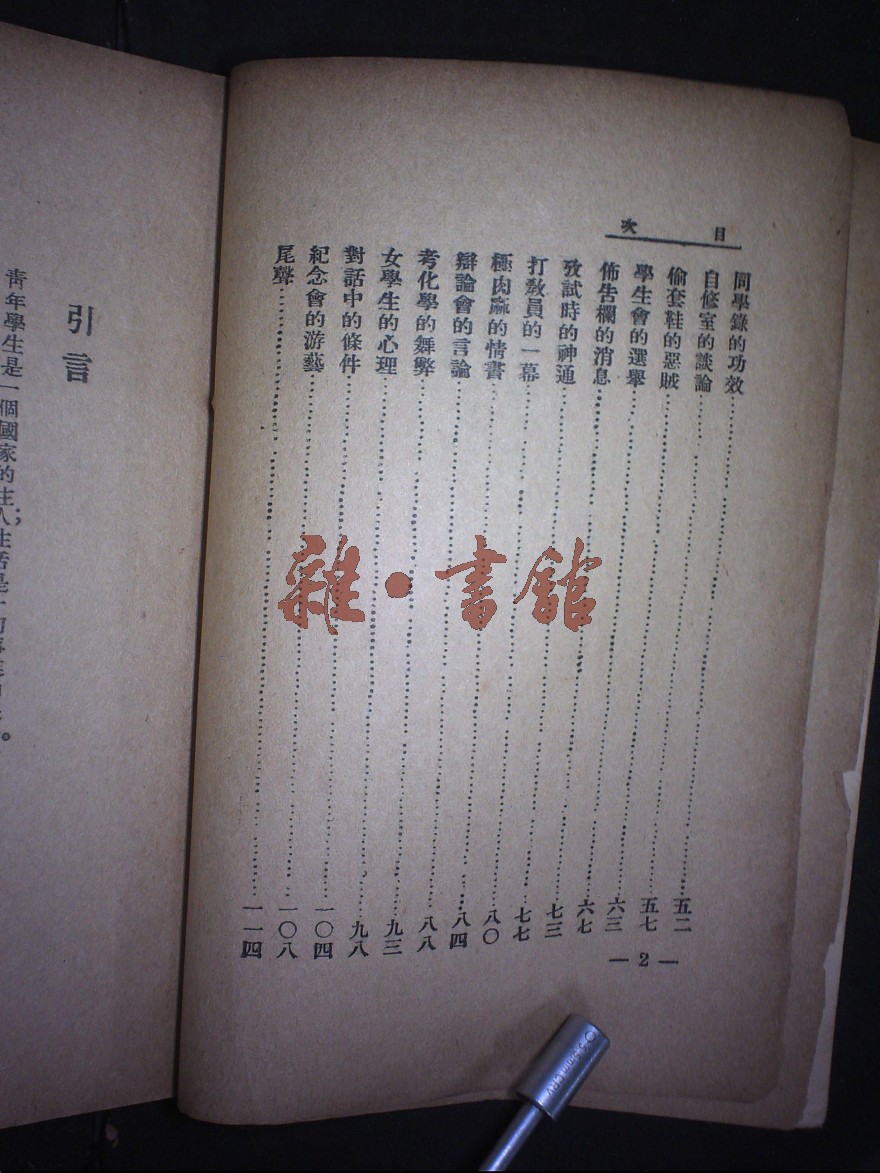 目次
同學錄的功效……五二
自修室的談論……五七
偷套鞋的惡賊……六三
學生會的選舉……六七
佈告欄的消息……七三
攷試時的神通……七七
打教員的一幕……八〇
極肉麻的情書……八四
辯論會的言論……八八
考化學的舞弊……九三
女學生的心理……九八
對話中的條件……一〇四
紀念會的游藝……一〇八
尾聲……一一四
— 2 —
雜·書館
引言
青年學生是一個國家的主人;生活是一